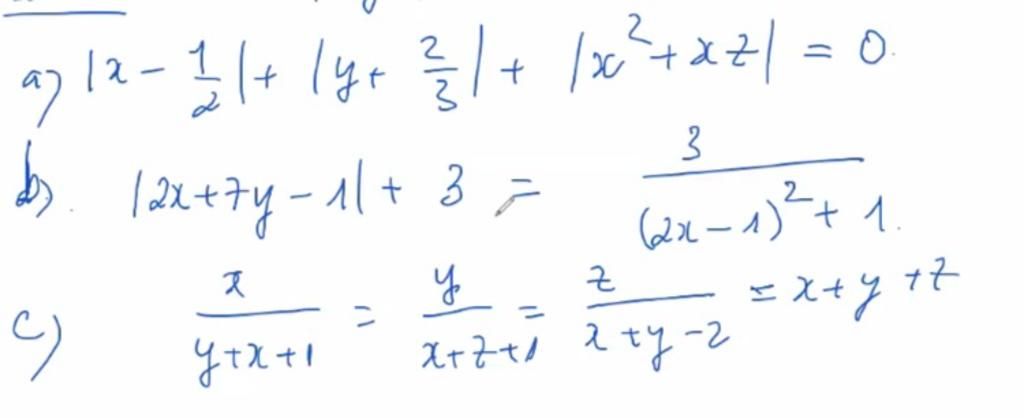 a) |x - 1/2| + |y + 2/3| + |x² + xz| = 0.
b). |2x + 7y - 1| + 3 = 3/((2x - 1)² + 1).
c) x/(y+x+1) = y/(x+z+1) = z/(x+y-2) = x+y+z